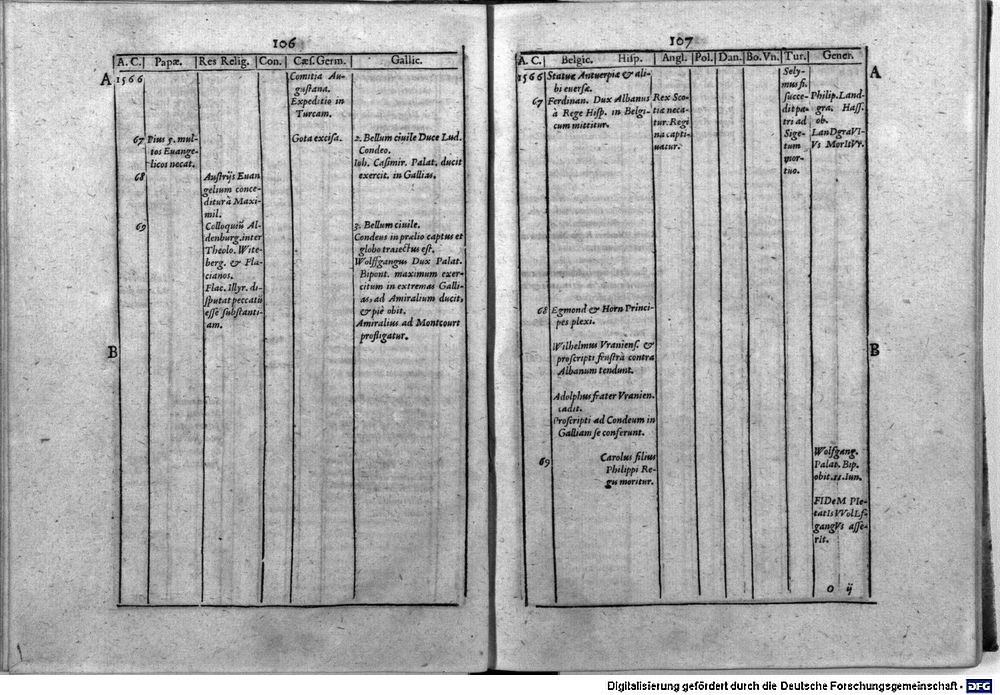 106
A. C. Papæ. Res Relig. Con. Cæs. Germ. Gallic.
A
1566
Comitia Au-
gustana.
Expeditio in
Turcam.
67 Pius 5. mul-
tos Euange-
licos necat.
Gota excisa.
2. Bellum ciuile Duce Lud.
Condeo.
Ioh. Casimir. Palat. ducit
exercit. in Gallias.
68
Austrijs Euan
gelium conce-
ditur à Maxi-
mil.
69
Colloquiũ Al-
denburg. inter
Theolo. Wite-
berg. & Fla-
cianos.
Flac. Illyr. di-
sputat peccatũ
esse substanti-
am.
3. Bellum ciuile.
Condeus in prælio captus et
globo traiectus est.
Wolffgangus Dux Palat.
Bipont. maximum exer-
citum in extremas Galli-
as, ad Amiralium ducit,
& piè obit.
Amiralius ad Montcourt
profligatur.
B
107
A. C. Belgic. Hisp. Angl. Pol. Dan. Bo. Vn. Tur. Gener.
A
1566 Statuæ Antuerpiæ & ali-
bi euersæ.
67 Ferdinan. Dux Albanus
à Rege Hisp. in Belgi-
cum mittitur.
Rex Sco-
tiæ neca-
tur. Regi
na capti-
uatur.
Soly-
mus fi.
succe-
dit pa-
tri ad
Sige-
tum
mor-
tuo.
Philip. Land-
gra. Hass.
ob.
LanDgraVI-
Vs MorItVr.
68 Egmond & Horn Princi-
pes plexi.
Wilhelmus Vraniens. &
proscripti frustrà contra
Albanum tendunt.
Adolphus frater Vranien.
cadit.
Proscripti ad Condeum in
Galliam se conferunt.
69
Carolus filius
Philippi Re-
gis moritur.
Wolfgang.
Palat. Bip.
obit. 11. Iun.
FIDeM PIe-
tatIs WolLf-
gangVs asse-
rit.
B
O ij
Digitalisierung gefördert durch die Deutsche Forschungsgemeinschaft - DFG